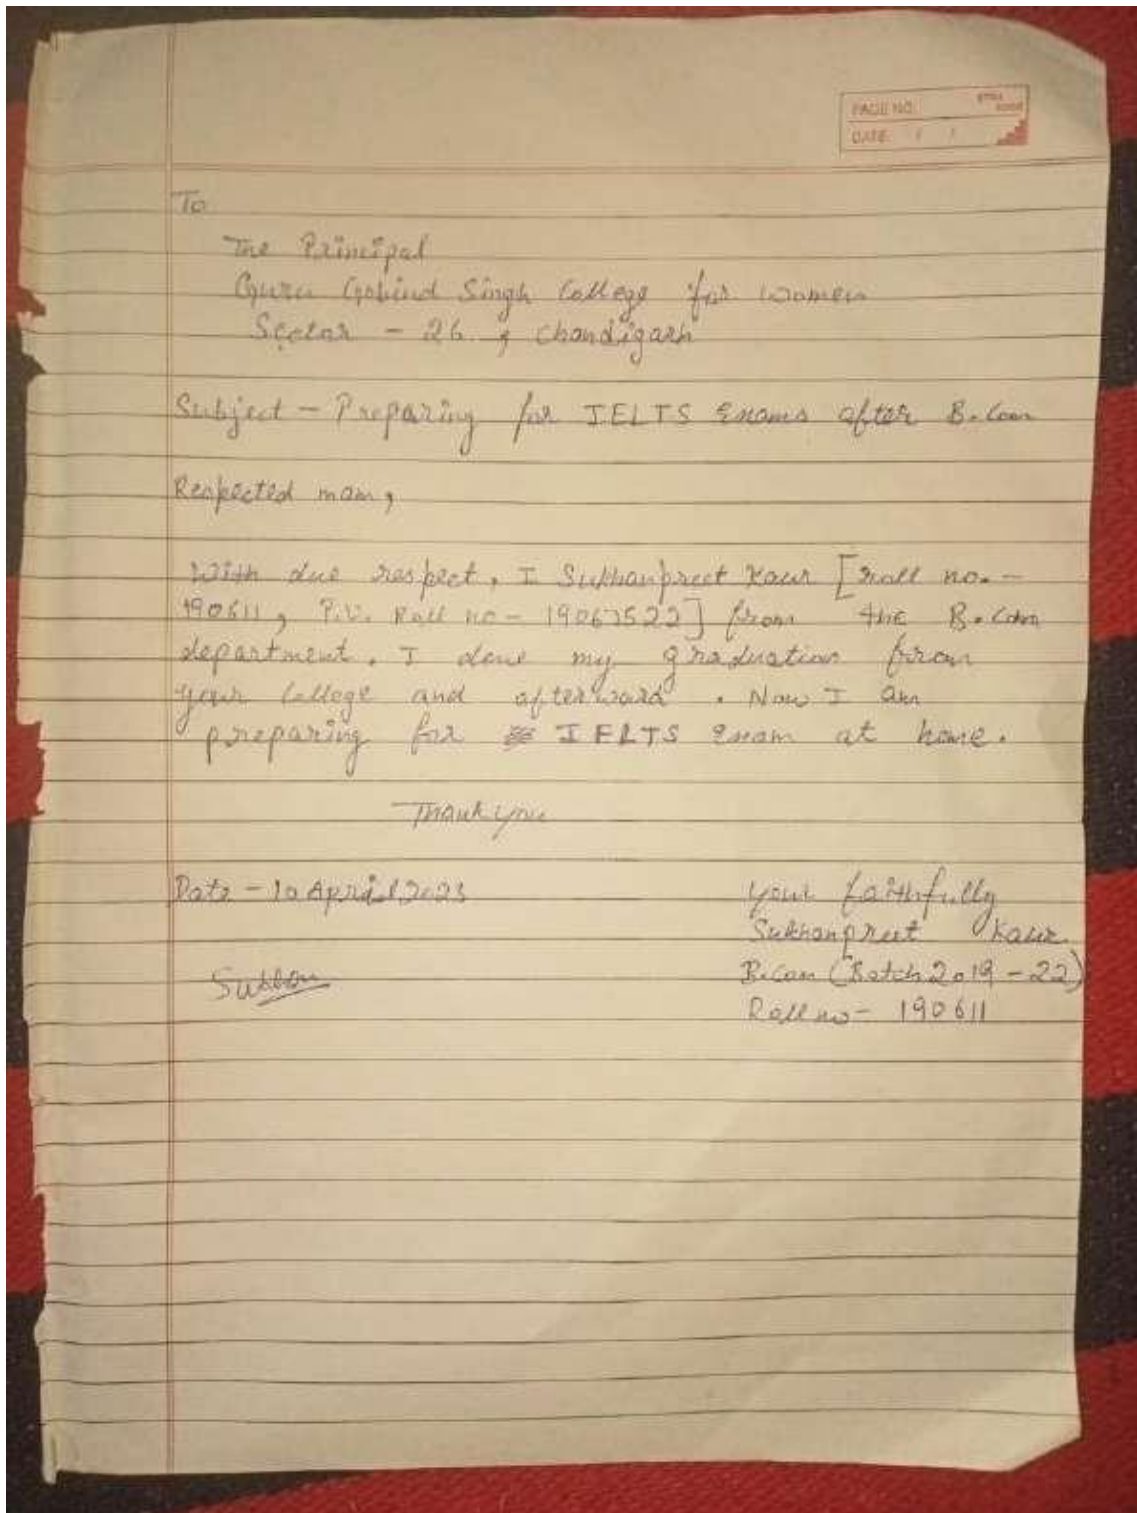 PAGE NO.
DATE: / /
To
The Principal
Guru Gobind Singh College for women
Sector - 26, Chandigarh
Subject - Preparing for IELTS Exams after B.Com
Respected mam,
With due respect, I Sukhanpreet Kaur [roll no. -
190611, P.U. Roll no - 19063522] from the B.Com
department. I done my graduation from
your College and afterward. Now I am
preparing for IELTS Exam at home.
Thank you
Date - 10 April 2023
your faithfully
Sukhanpreet Kaur
B.Com (Batch 2019 - 22)
Roll no - 190611